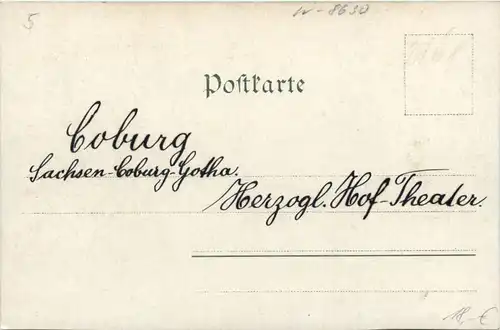 5
w-8630
Postkarte
Coburg
Sachsen-Coburg-Gotha.
Herzogl. Hof-Theater.
18,-€